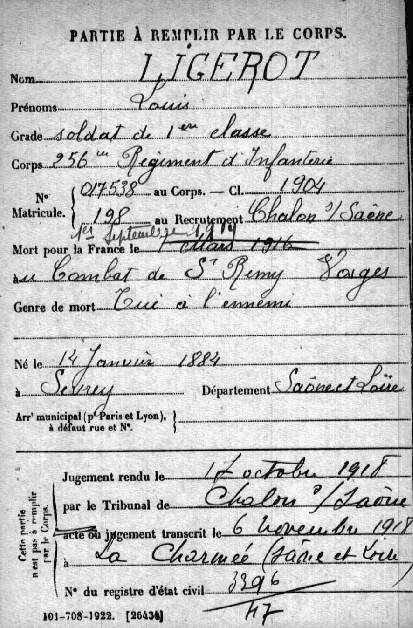 PARTIE À REMPLIR PAR LE CORPS.
Nom LIGEROT
Prénoms Louis
Grade soldat de 1ère classe
Corps 256me Régiment d'Infanterie
N° Matricule. { 017538 au Corps. — Cl. 1904
198 au Recrutement Chalon s/Saône
Septembre 1914
Mort pour la France le Mars 1916
au Combat de St Remy Vosges
Genre de mort Tué à l'ennemi
Né le 14 Janvier 1884
à Sevrey Département Saône et Loire
Arrt municipal (pr Paris et Lyon), }
à défaut rue et N°.
Cette partie n'est pas à remplir par le Corps.
Jugement rendu le 17 octobre 1918
par le Tribunal de Chalon s/Saône
acte ou jugement transcrit le 6 novembre 1918
à La Charmée (Saône et Loire)
N° du registre d'état civil 3396
47
101-708-1922. [26434]